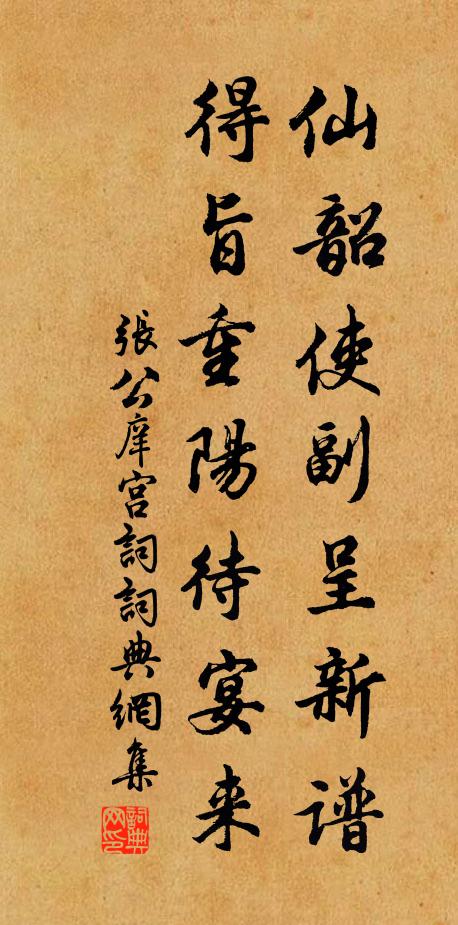 仙韶使副呈新谱
得旨重陽待宴来
張公庠宫詞詞典網集
詞典网印